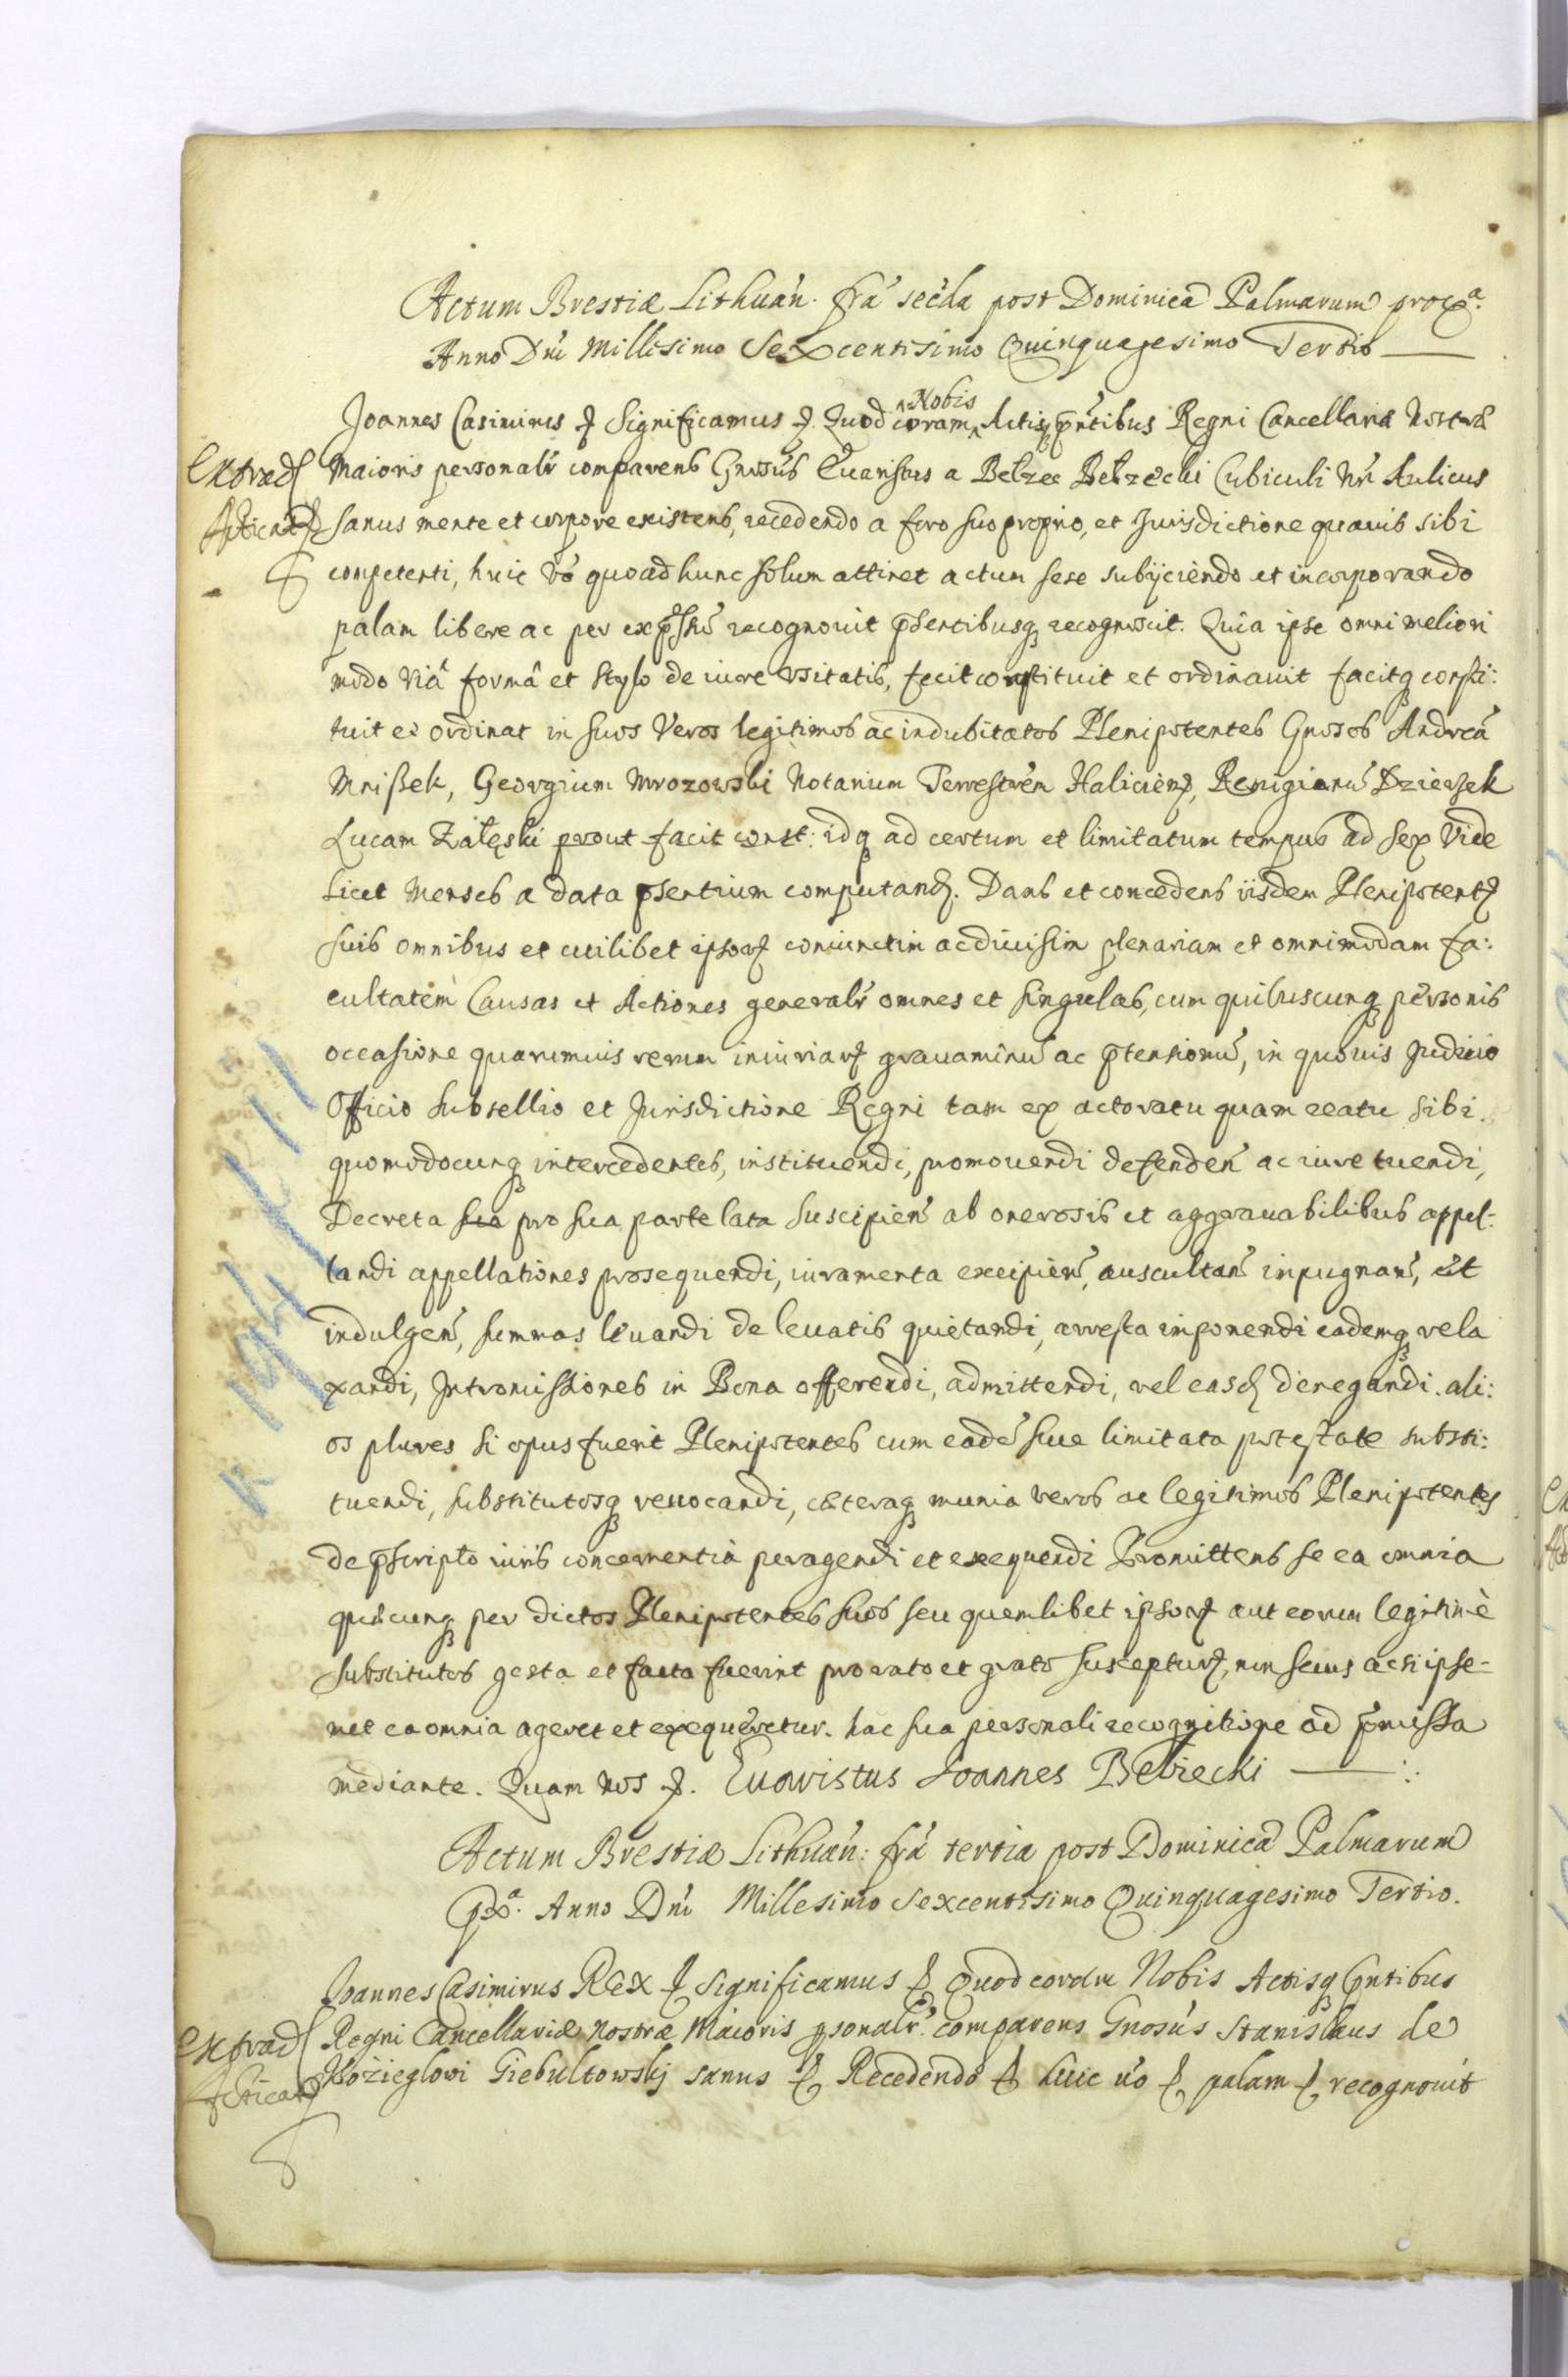 Actum Brestiæ Lithuan̄. frã secda post Dominicã Palmarum prox.ª
Anno Dnī Millisimo Sexcentisimo Quinquagesimo Tertio
Joannes Casimirus Significamus Quod coram Nobis Actisq pn̄tibus Regni Cancellariæ Nostræ
Extrad
Maioris personalr̄ comparens Gnosūs Evaristus a Belzec Belzecki Cubiculi Nrī Aulicus
sanus mente et corpore existens, recedendo a foro suo proprio, et Jurisdictione quavis sibi
competenti, huic vō quoad hunc solum attinet actum sese subijciendo et incorporando
palam libere ac per exp̄ssū recognovit p̄sentibusq recognoscit. Quia ipse omni meliori
modo viâ formâ et stylo de iure usitatis, fecit constituit et ordinavit facitq consti:
tuit et ordinat in suos Veros legitimos ac indubitatos Plenipotentes Gnosos Andreā
Mniszek, Georgium Mrozowski Notarium Terrestrem Halicien, Remigianū Dzierzek
Lucam Załęski prout facit const: idq ad certum et limitatum tempus ad sex Vide
licet Menses a data p̄sentium computand. Dans et concedens iisdem Plenipotent
suis omnibus et cuilibet ipsor coniunctim ac divisim plenariam et omnimodam fa:
cultatem Causas et Actiones generalr̄ omnes et singulas, cum quibuscunq personis
occasione quarumvis rerum iniuriar gravaminū ac p̄tensionū, in quovis Judicio
Officio Subsellio et Jurisdictione Regni tam ex actoratu quam reatu sibi
quomodocunq intercedentes, instituendi, promovendi defenden̄ ac iure tuendi,
Decreta sua pro sua parte lata suscipien̄ ab onerosis et aggravabilibus appel:
landi appellationes prosequendi, iuramenta excipien̄, auscultan̄ inpugnan̄, et
indulgen̄, summas levandi de levatis quietandi, arresta inponendi eademq rela
xandi, Intromissiones in Bona offerendi, admittendi, vel easd denegandi. ali:
os plures si opus fuerit Plenipotentes cum eadē sive limitata potestate substi:
tuendi, substitutosq revocandi, cæteraq munia veros ac legitimos Plenipotentes
de p̄scripto iuris concernentia peragendi et exequendi Promittens se ea omnia
quæcunq per dictos Plenipotentes suos seu quemlibet ipsor aut eorum legitimè
substitutos gesta et facta fuerint pro rato et grato suscepturū, non secus ac si ipse-
met ea omnia ageret et exequeretur. hac sua personali recognitione ad p̄missa
mediante. Quam nos Evaristus Joannes Belzecki
Actum Brestiæ Lithuan̄: frã tertia post Dominicã Palmarum
pxª. Anno Dnī Millesimo Sexcentisimo Quinquagesimo Tertio.
Joannes Casimirus Rex Significamus Quod coram Nobis Actisq p̄ntibus
Extrad
Regni Cancellariæ Nostræ Maioris psonalr̄. comparens Gnosūs Stanislaus de
Kozieglowi Giebultowskj sanus Recedendo huic vō palam recognovit